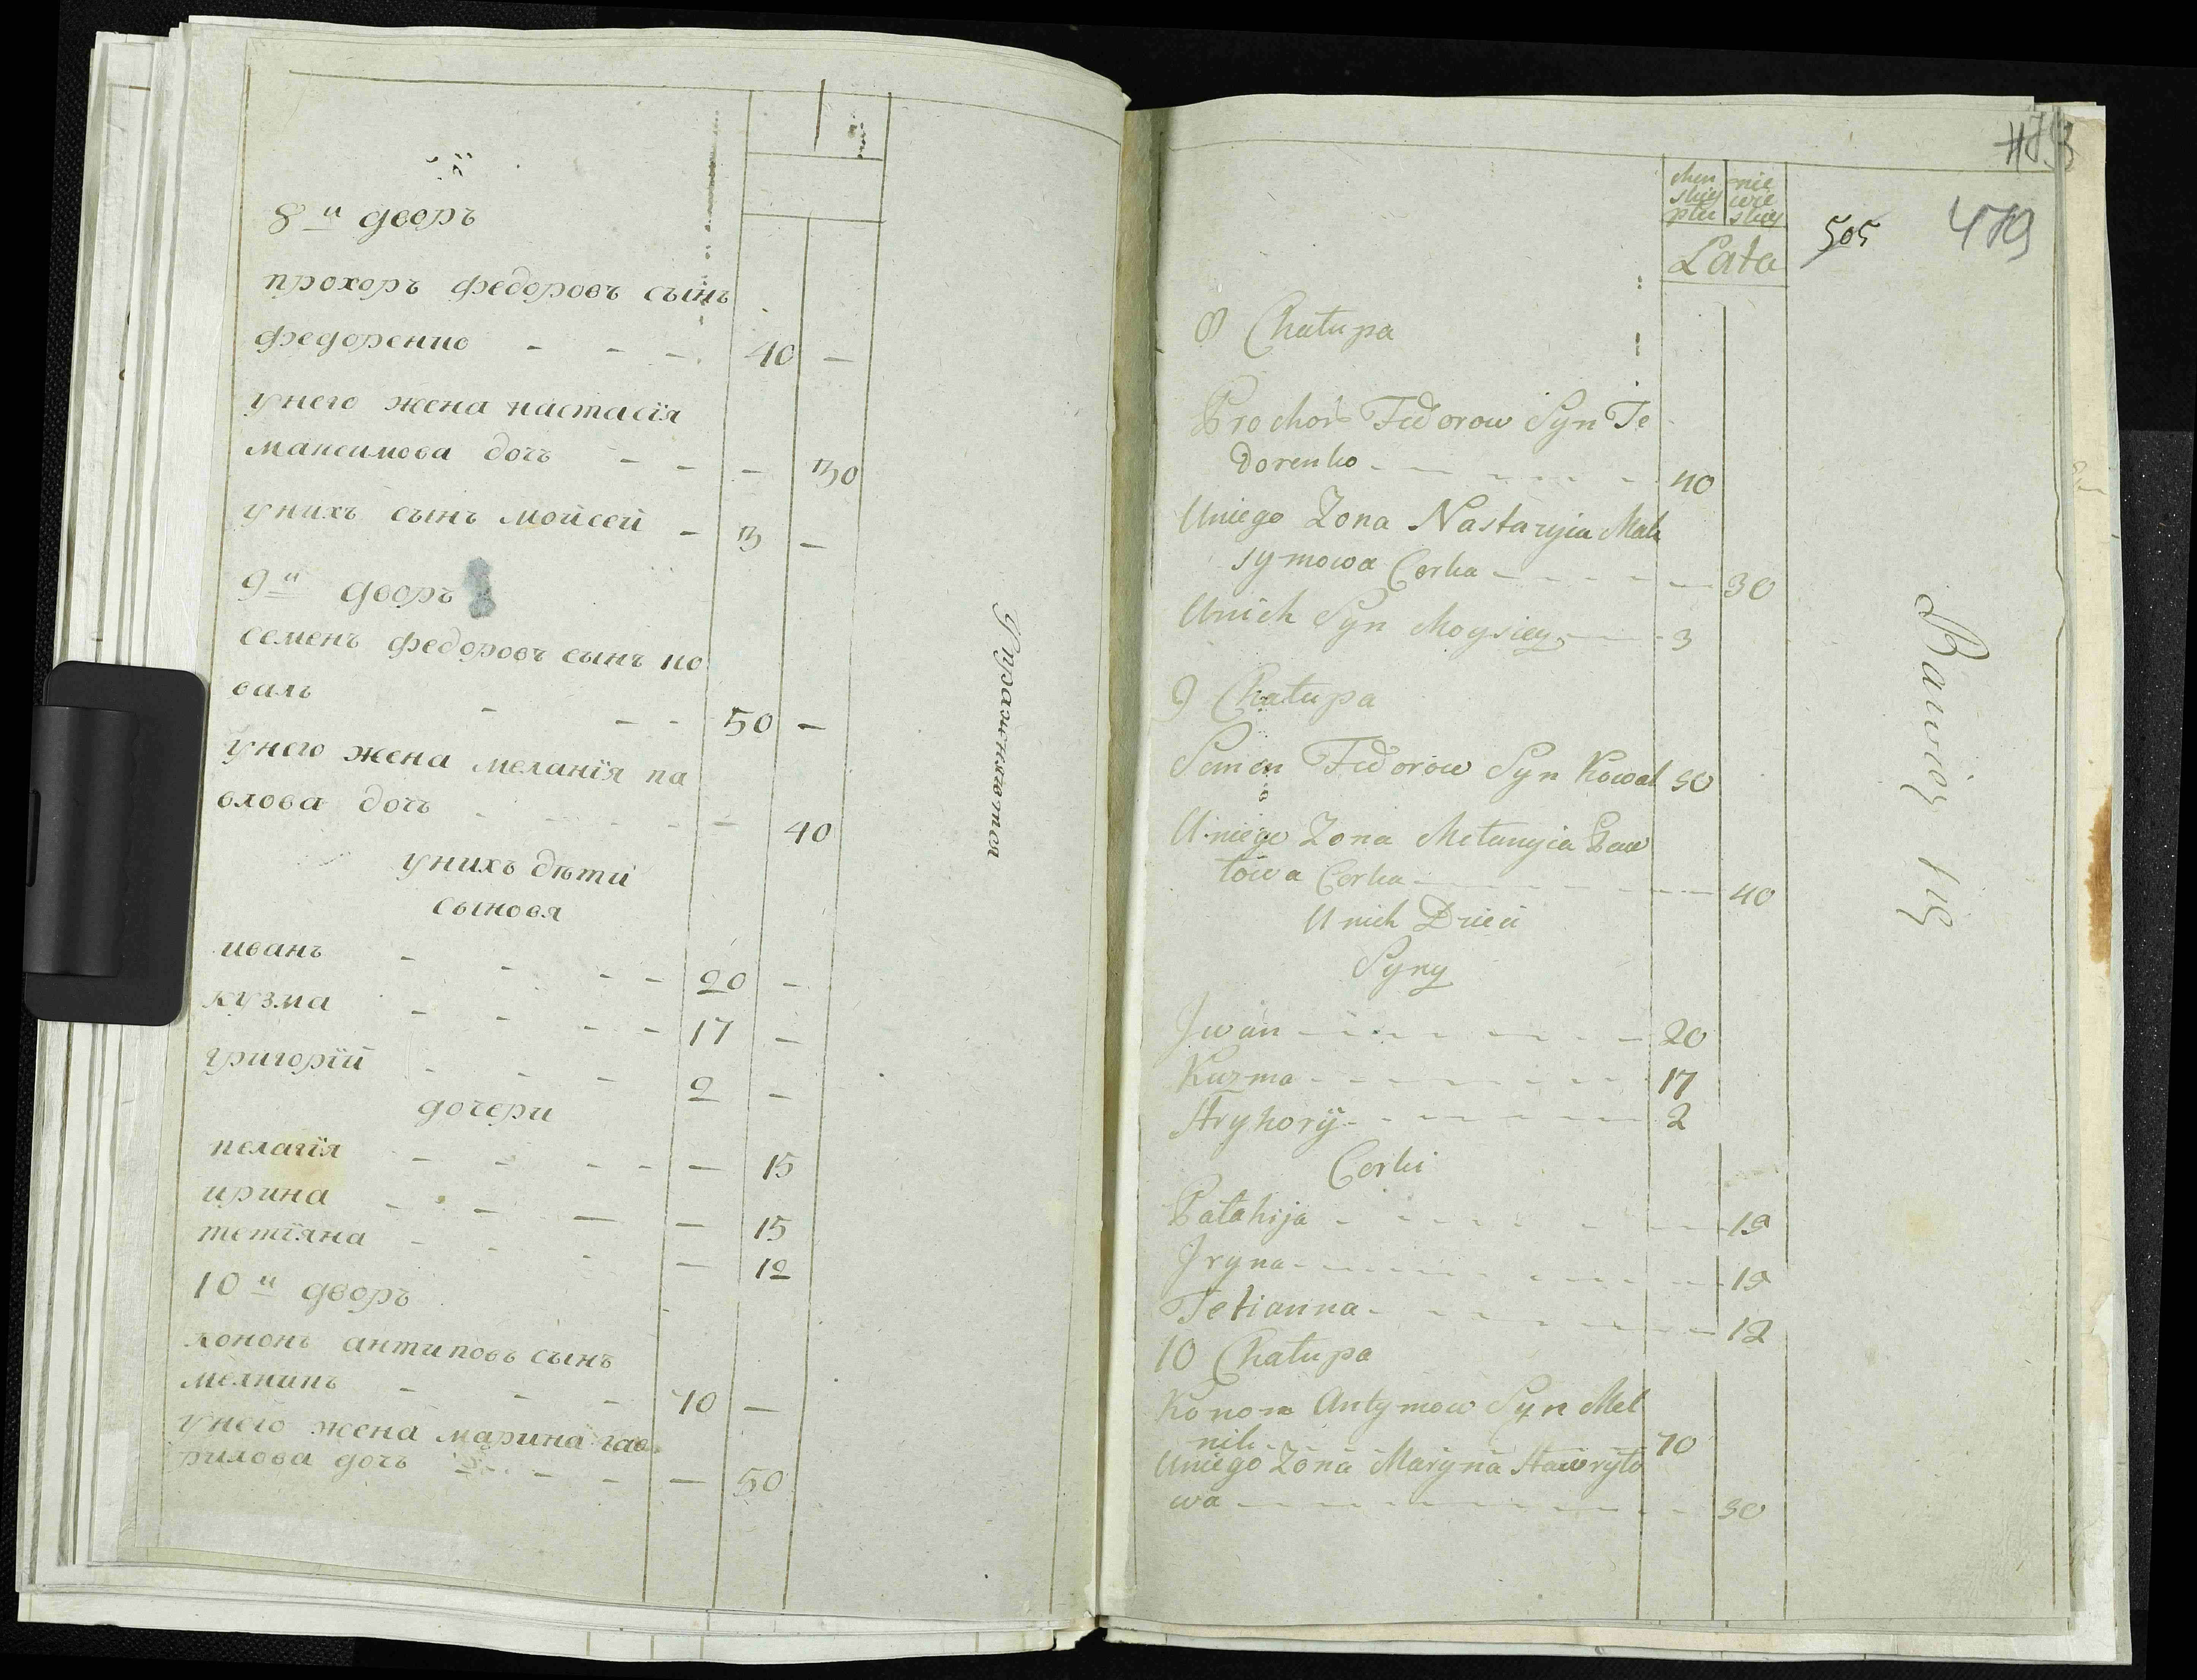 8й дворъ
прохоръ федоровъ сынъ
федоренко - - - 40 -
унего жена настасїя
максимова дочь - - - 30
унихъ сынъ мойсей - 3 -
9й дворъ
семенъ федоровъ сынъ ко
валь - - - 50 -
унего жена меланїя па
влова дочь - - - 40
унихъ дѣти
сыновя
иванъ - - - - 20 -
кузма - - - - 17 -
григорїй - - - 2 -
дочери
пелагїя - - - - - 15
ирина - - - - 15
тетїяна - - - - 12
10й дворъ
кононъ антиповъ сынъ
мелникъ - - - 70 -
унего жена марина гав
рилова дочь - - - - 50
Упражняются
479
505
Męn
skiey
płci
nie
wie
skiey
Lata
8 Chałupa
Prochor Fedorow Syn Fe
dorenko - - - - 40
Uniego Zona Nastazyia Mak
symowa Corka - - - - 30
Unich Syn Moysiey - - 3
9 Chałupa
Semen Fedorow Syn Kowal 50
Uniego Zona Mełanyia Paw
łowa Corka - - - - 40
Unich Dzieci
Syny
Jwan - - - - 20
Kuzma - - - - 17
Hryhorij - - - - 2
Corki
Pałahija - - - - 15
Jryna - - - - 15
Tetianna - - - - 12
10 Chałupa
Konon Antymow Syn Mel
nik - 70
Uniego Zona Maryna Hawryło
wa - - - - 50